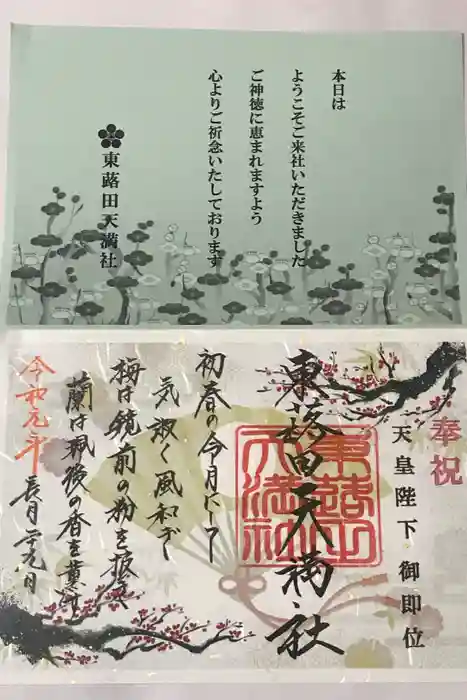 本日は
ようこそご来社いただきました
ご神徳に恵まれますよう
心よりご祈念いたしております
東蕗田天満社
奉祝
天皇陛下 御即位
東蕗田天満社
東蕗田天満社
初春の令月にして
気淑く風和ぎ
梅は鏡前の粉を披き
蘭は珮後の香を薫す
令和元年
長月
九日